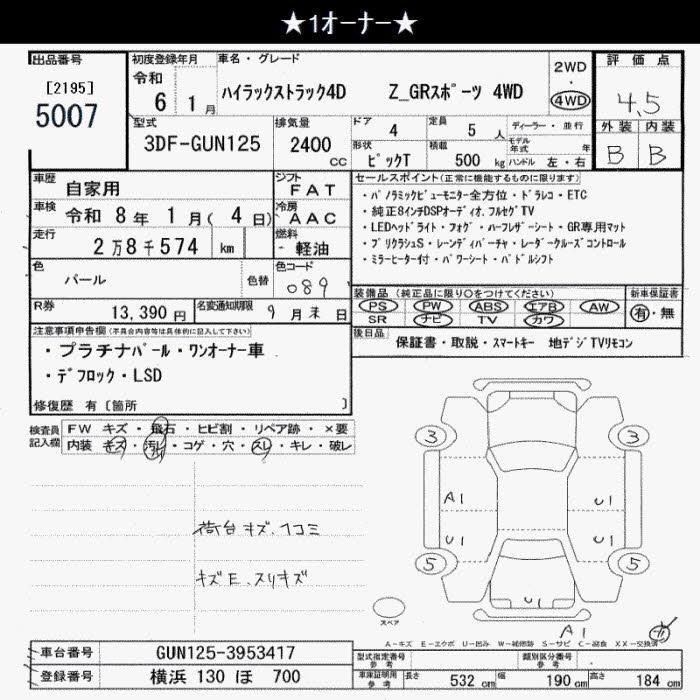 ★1オーナー★
出品番号
[2195]
5007
初度登録年月
令和
6 1月
車名・グレード
ハイラックストラック4D Z_GRスポーツ 4WD
2WD
・
4WD
評価点
4.5
外装 内装
B B
型式
3DF-GUN125
排気量
2400
cc
ドア 4
定員 5 人
ディーラー・並行
形状 ピックT
積載 500 kg
モデル年式 年
ハンドル 左・右
車歴 自家用
シフト FAT
車検 令和 8年 1月( 4日)
冷房 AAC
走行 2万8千574 km
燃料 軽油
色 パール 色替
色コード 089
R券 13,390円
名変通知期限 9月末日
セールスポイント(正常に機能するものに限ります)
・パノラミックビューモニター全方位・ドラレコ・ETC
・純正8インチDSPオーディオ.フルセグTV
・LEDヘッドライト・フォグ・ハーフレザーシート・GR専用マット
・プリクラシュS・レーンディパーチャ・レーダークルーズコントロール
・ミラーヒーター付・パワーシート・パドルシフト
装備品(純正品に限り○をつけてください)
PS PW ABS エアB AW
SR ナビ TV カワ
新車保証書
有・無
後日品 保証書・取説・スマートキー 地デジTVリモコン
注意事項申告欄(不具合内容等は具体的に記入して下さい)
・プラチナパール・ワンオーナー車
・デフロック・LSD
修復歴 有〔箇所 〕
検査員記入欄
FW キズ・飛石・ヒビ割・リペア跡・×要
内装 キズ・汚れ・コゲ・穴・スレ・キレ・破レ
荷台キズ.凹コミ
キズE.スリキズ
3 3
A1 U1
U1 U1
5 5
U1
A1
スペア
A-キズ E-エクボ U-凹み W-補修跡 S-サビ C-腐食 XX-交換済
車台番号 GUN125-3953417
登録番号 横浜 130 ほ 700
型式指定番号 参考
類別区分番号 参考
車庫証明用 参考
長さ 532 cm 幅 190 cm 高さ 184 cm